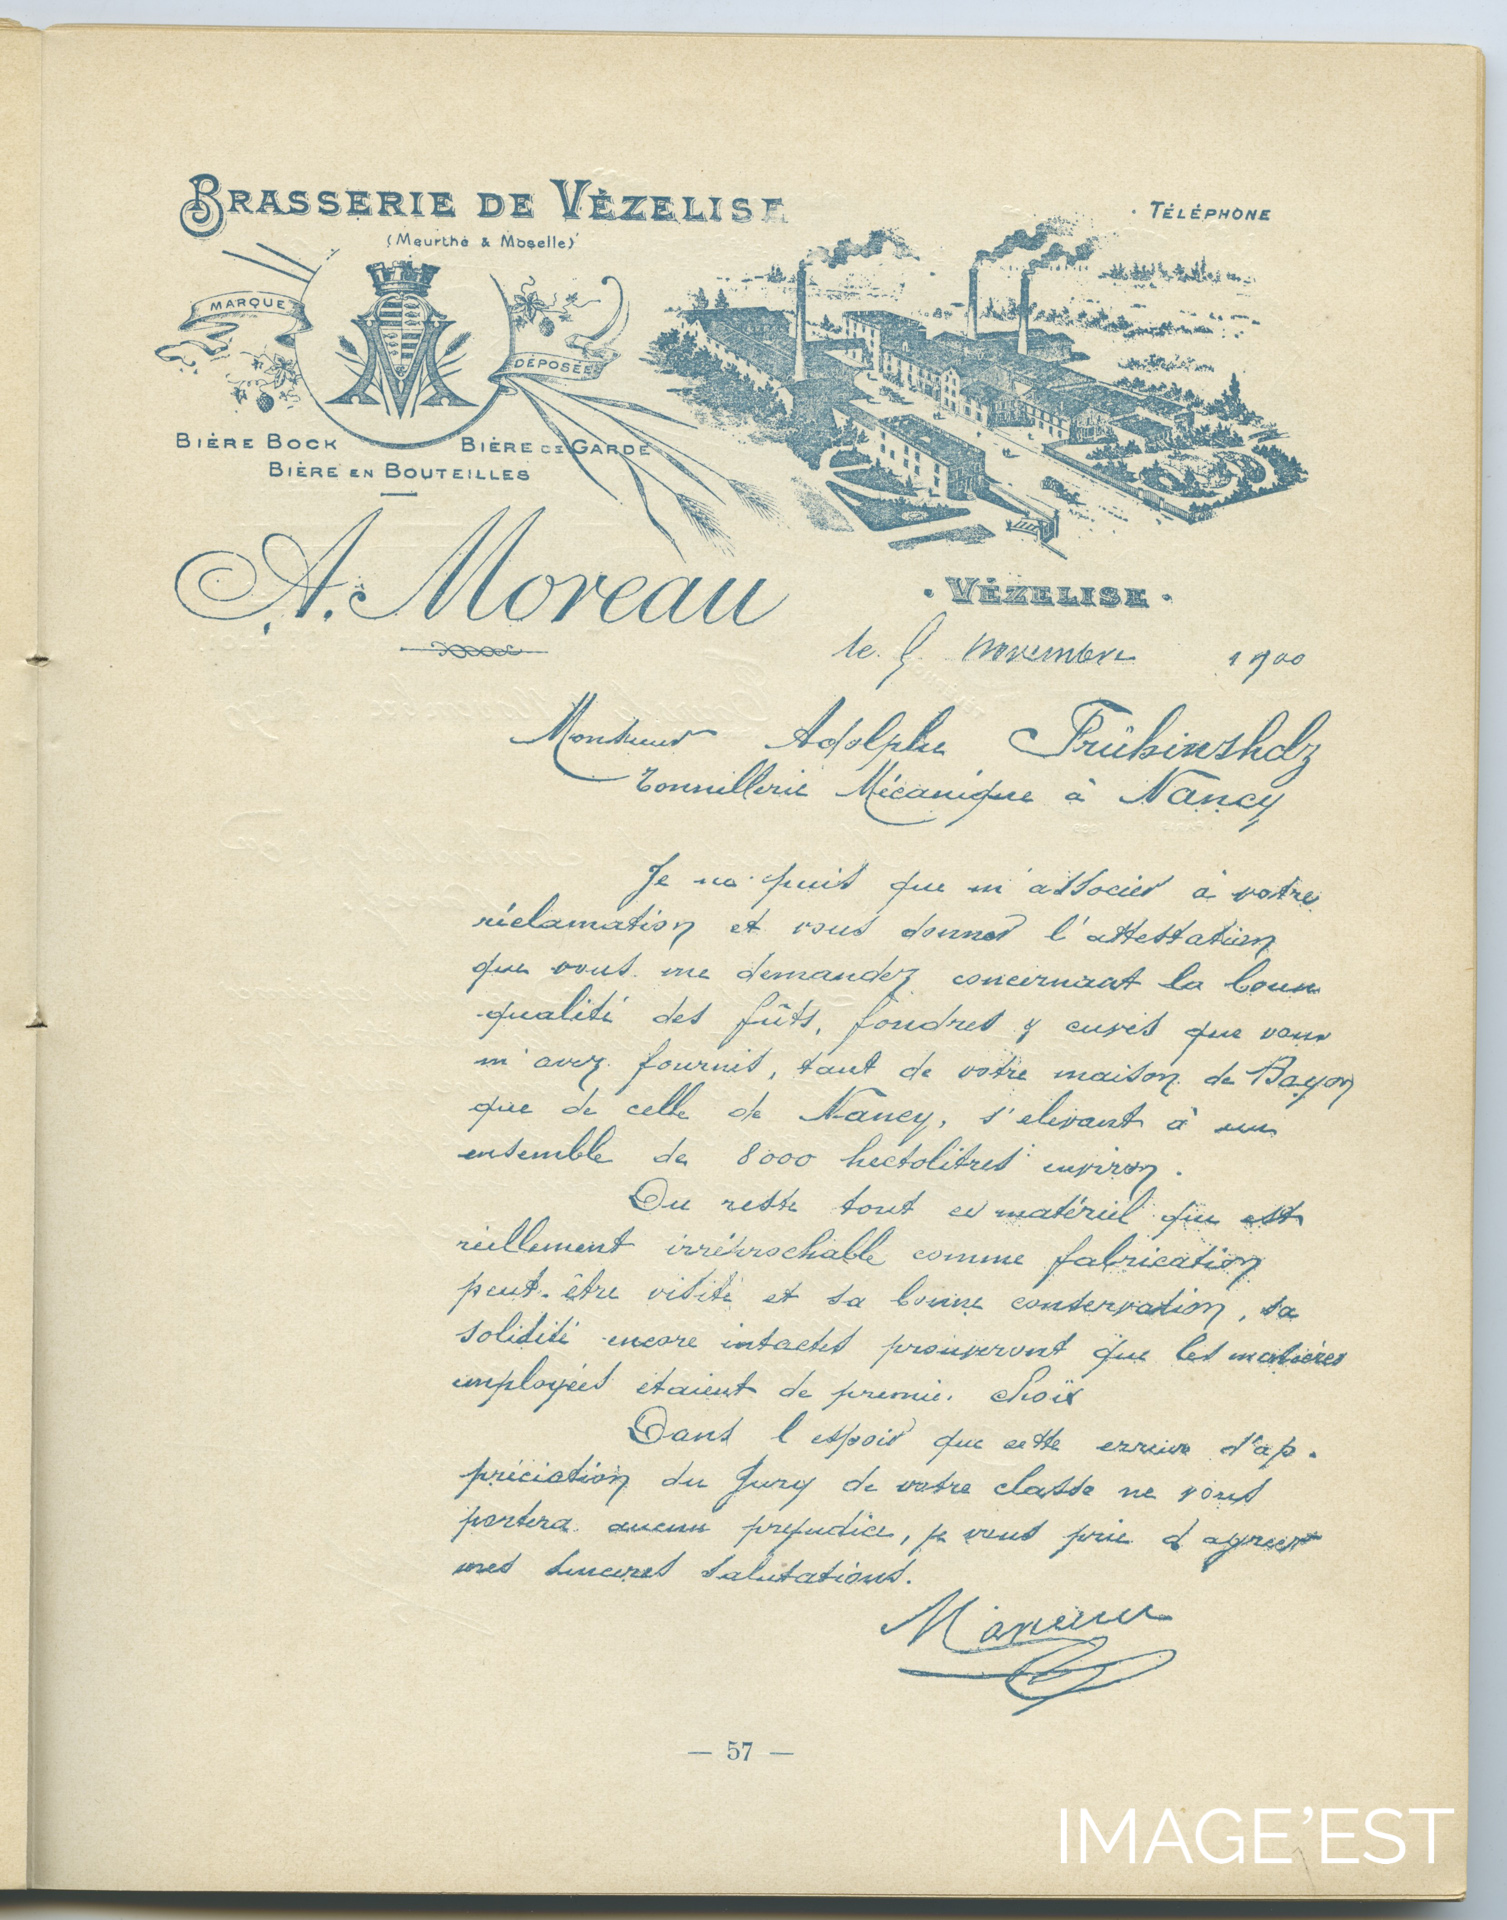 BRASSERIE DE VÉZELISE
(Meurthe & Moselle)
TÉLÉPHONE
MARQUE
DÉPOSÉE
BIÈRE BOCK
BIÈRE DE GARDE
BIÈRE EN BOUTEILLES
A. Moreau
VÉZELISE
le 5 novembre 1900
Monsieur Adolphe Frühinsholz
Tonnellerie Mécanique à Nancy
Je ne puis que m'associer à votre
réclamation et vous donner l'attestation
que vous me demandez concernant la bonne
qualité des fûts, foudres & cuves que vous
m'avez fournis, tant de votre maison de Bayon
que de celle de Nancy, s'elevant à un
ensemble de 8000 hectolitres environ.
Du reste tout ce matériel qui est
réellement irréprochable comme fabrication
peut-être visité et sa bonne conservation, sa
solidité encore intactes prouveront que les matières
employées etaient de premier choix
Dans l'espoir que cette erreur d'ap-
préciation du Jury de votre classe ne vous
portera aucun prejudice, je vous prie d'agreer
mes sinceres salutations.
Moreau
— 57 —
IMAGE'EST